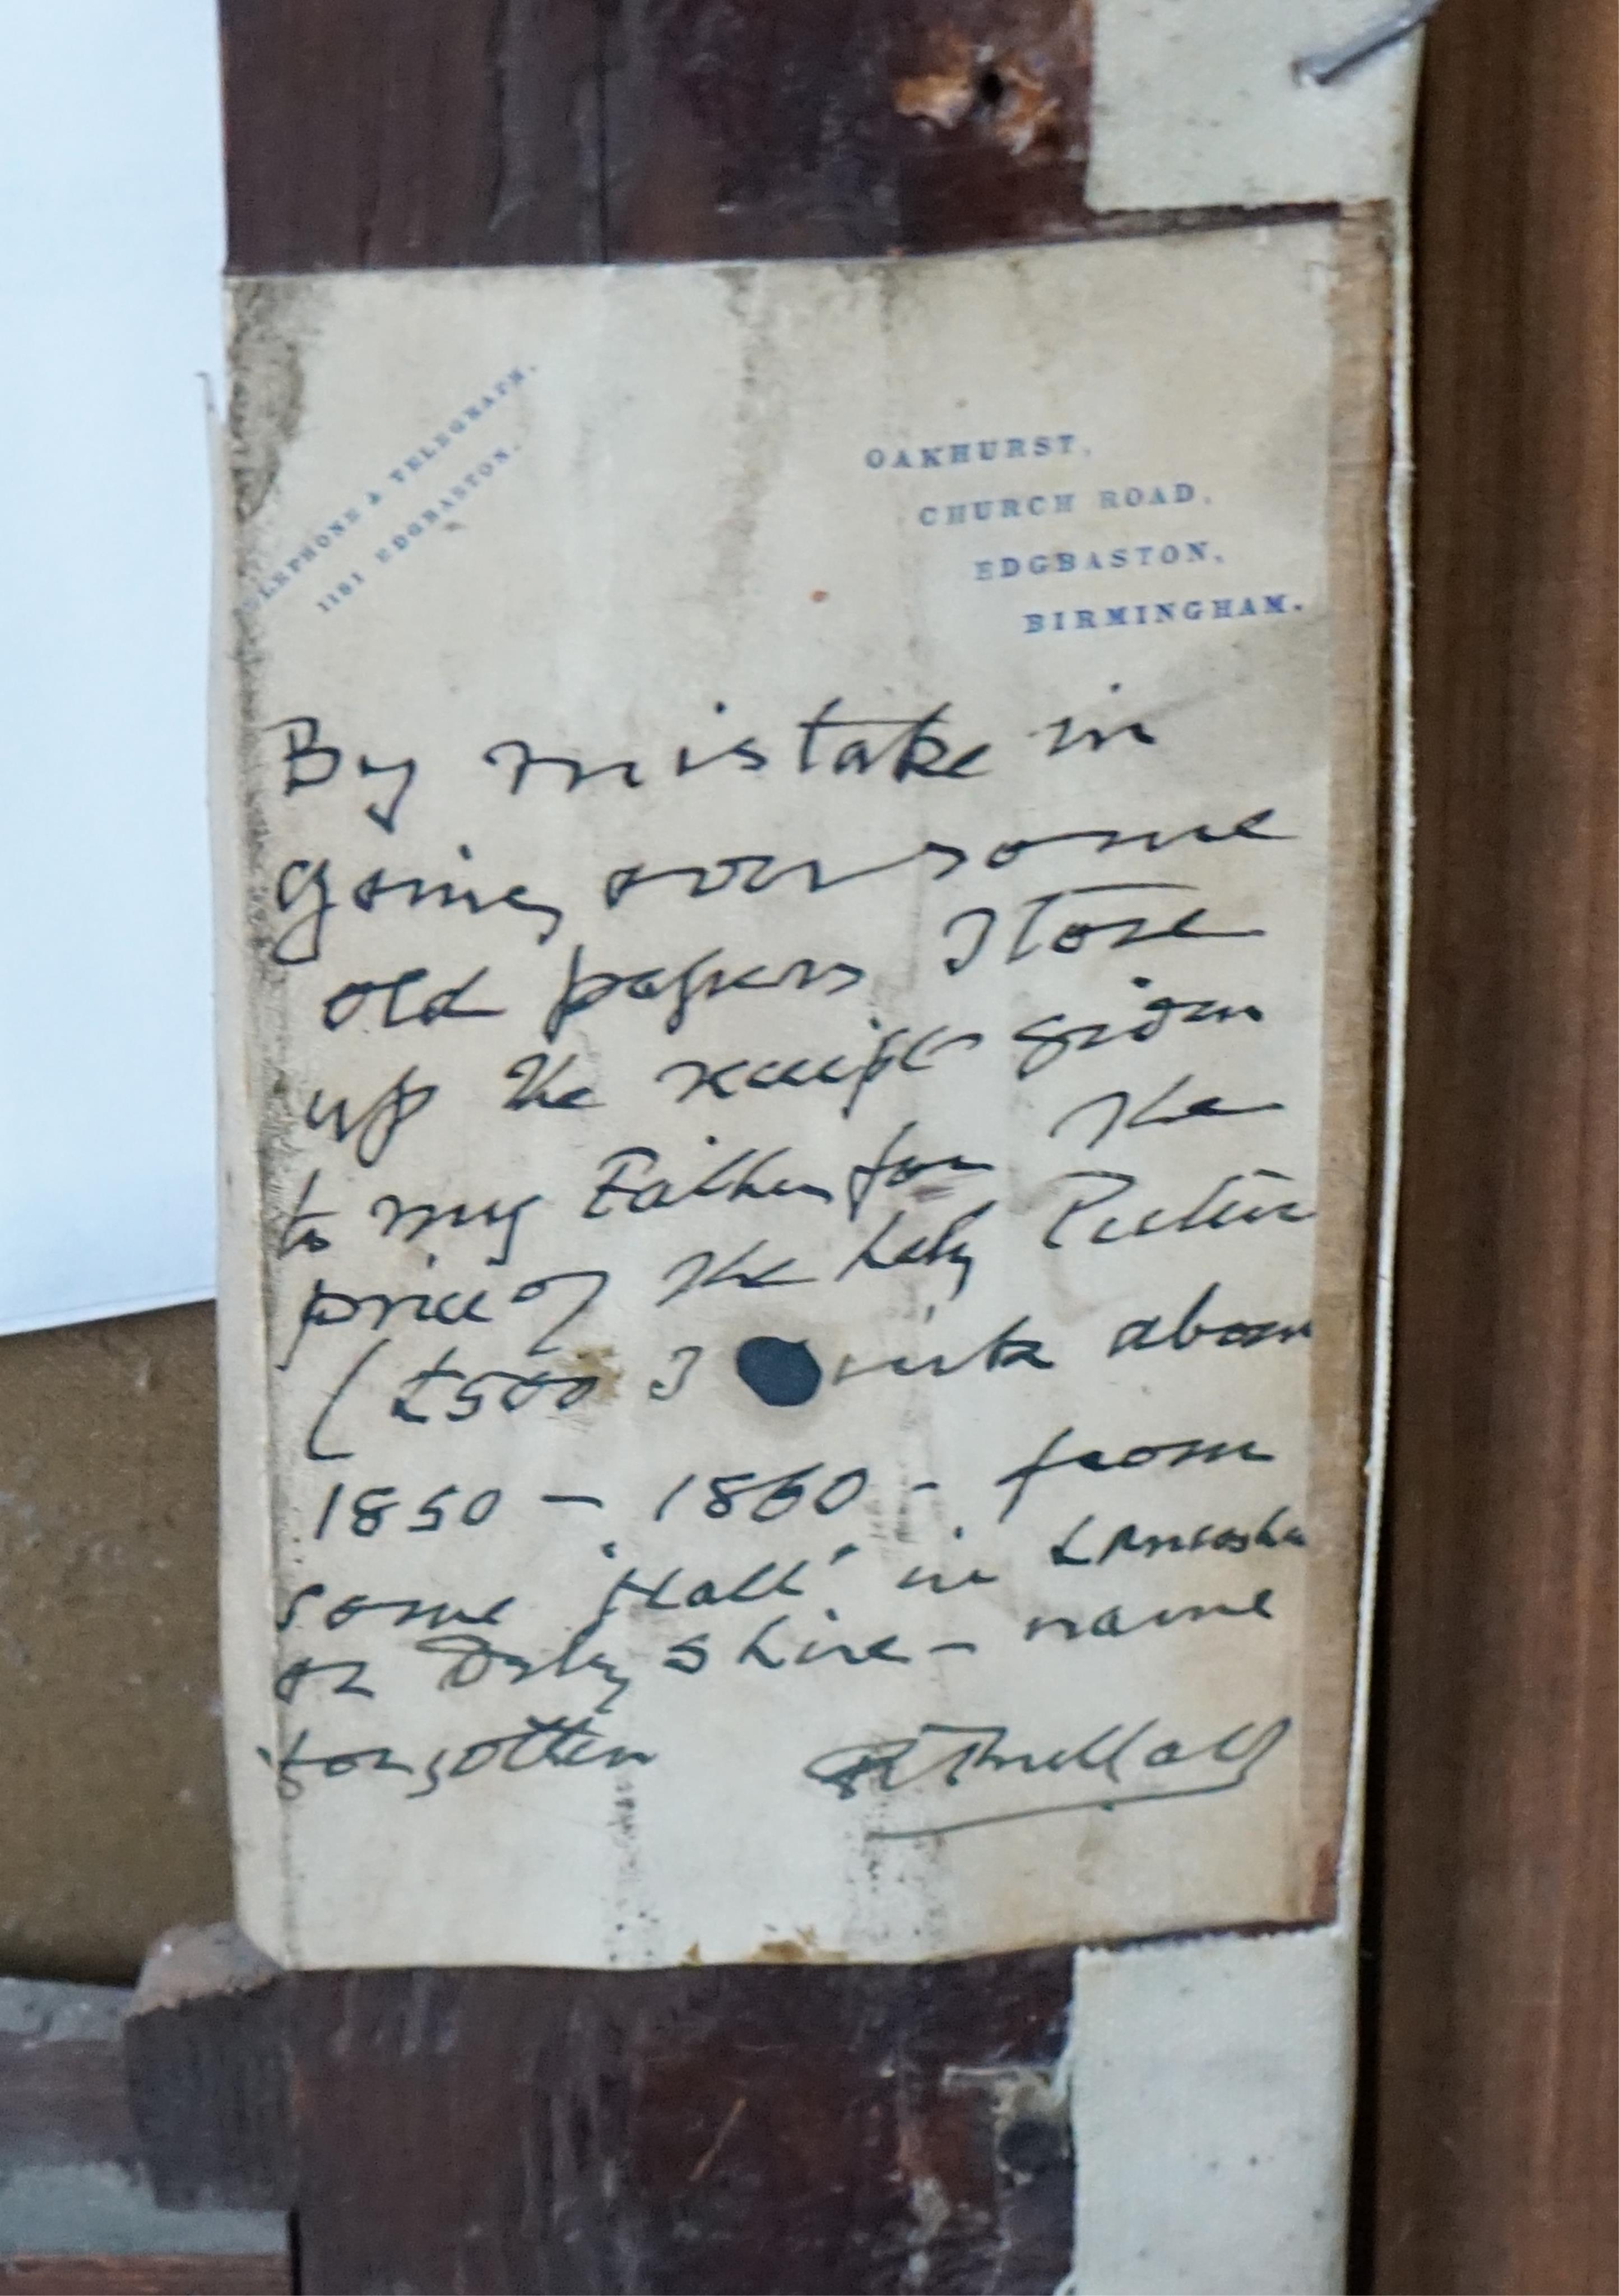 TELEPHONE & TELEGRAPH.
1181 EDGBASTON.
OAKHURST,
CHURCH ROAD,
EDGBASTON,
BIRMINGHAM.
By mistake in
going over some
old papers I tore
up the receipt given
to my Father for the
price of the Lely Picture
(£500 I
1850 – 1860 - from
some "Hall" in Lancashire
or Derbyshire – name
forgotten